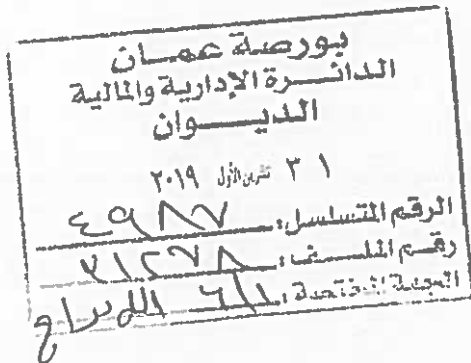 بورصة عمان
الدائرة الإدارية والمالية
الديوان
٣١ تشرين الأول ٢٠١٩
الرقم المتسلسل: ٤٩٨٧
رقم الملف: ٣١٢٧٨
الجهة المختصة: